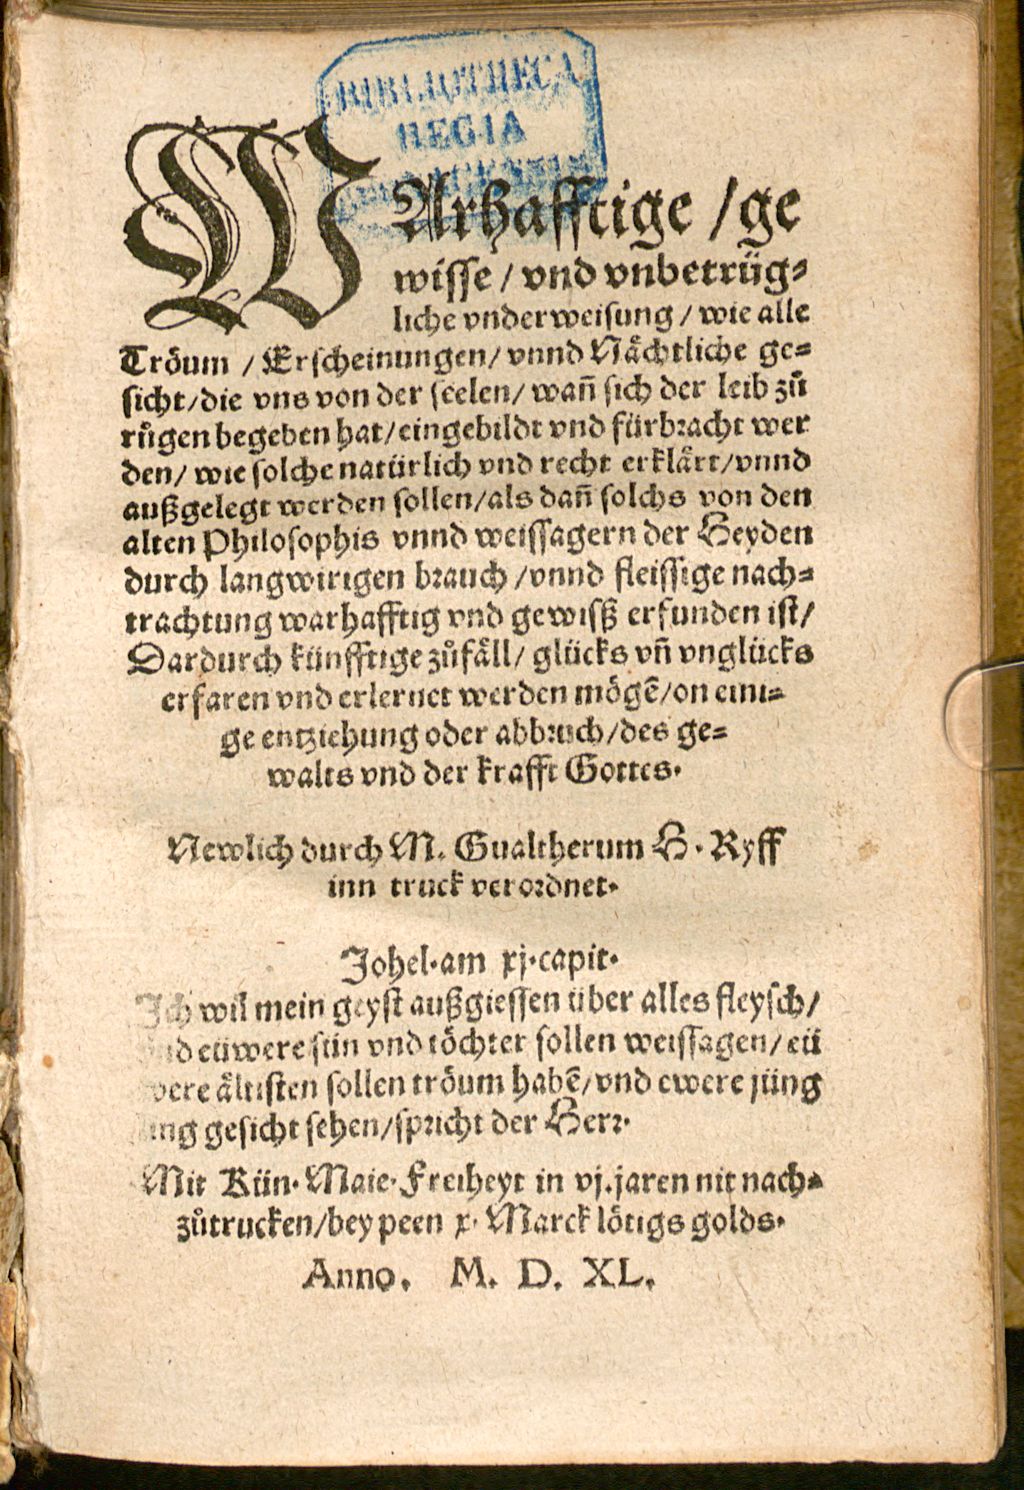 BIBLIOTHECA
REGIA
WArhafftige /ge
wisse / vnd vnbetrüg⸗
liche vnderweisung / wie alle
Tröum / Erscheinungen/ vnnd Nächtliche ge⸗
sicht/die vns von der seelen/ wañ sich der leib zů
růgen begeben hat/eingebildt vnd fürbracht wer
den/ wie solche natürlich vnd recht erklärt/vnnd
außgelegt werden sollen/als dañ solchs von den
alten Philosophis vnnd weissagern der Heyden
durch langwirigen brauch /vnnd fleissige nach⸗
trachtung warhafftig vnd gewisß erfunden ist/
Dardurch künfftige zůfäll/ glücks vñ vnglücks
erfaren vnd erlernet werden mögẽ/on eini⸗
ge entziehung oder abbruch/des ge⸗
walts vnd der krafft Gottes.
Newlich durch M. Gualtherum H. Ryff
inn truck verordnet.
Johel.am xj.capit.
Ich wil mein geyst außgiessen über alles fleysch/
vnd eüwere sün vnd töchter sollen weissagen/ eü
were ältisten sollen tröum habẽ/vnd ewere jüng
ling gesicht sehen/spricht der Herr.
Mit Kün. Maie. Freiheyt in vj.jaren nit nach⸗
zůtrucken/bey peen x. Marck lötigs golds.
Anno. M. D. XL.